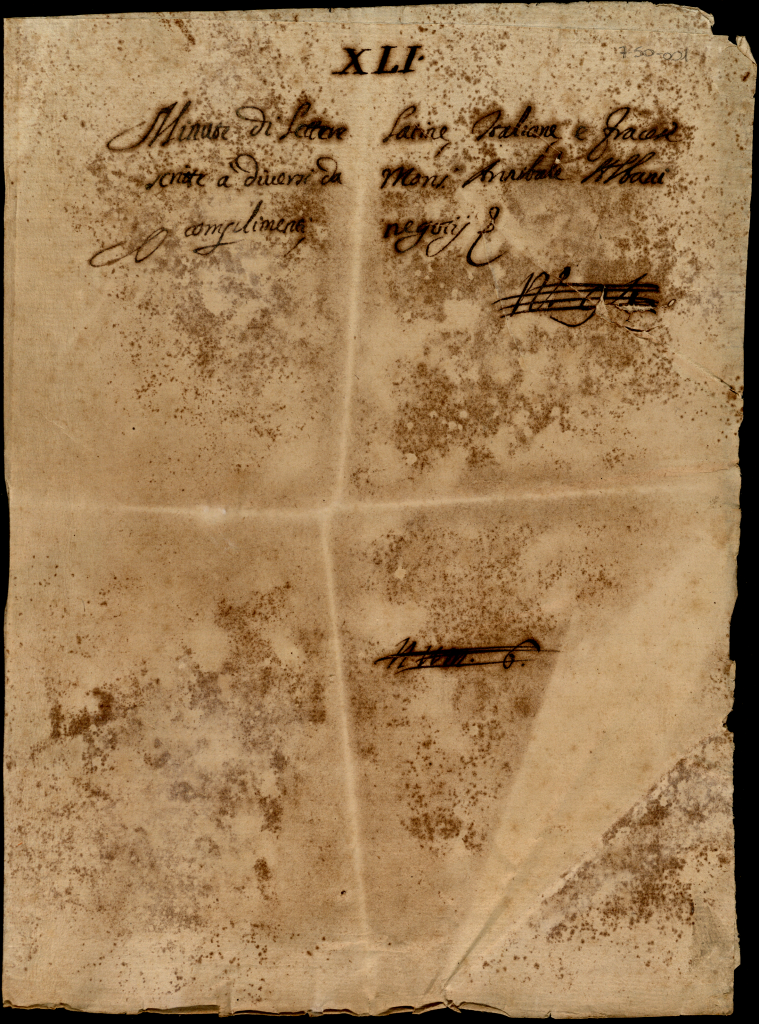 XLI.
750-001
Minute di Lettere Latine, Italiane e Francesi
scritte a diversi da Mons. Annibale Albani
complimenti negotij
Num. 6.